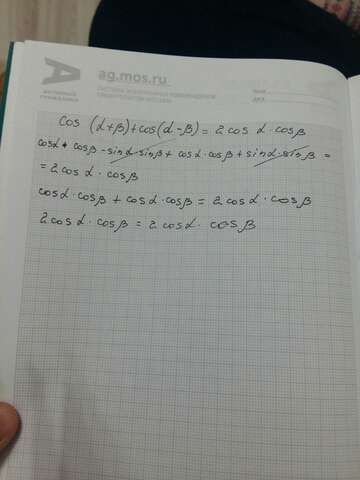 ag.mos.ru
cos (α+β)+cos(α-β)=2cos α·cosβ
cosα • cosβ-sinα·sinβ+cosα·cosβ+sinα·sinβ =
=2cosα·cosβ
cosα·cosβ+cosα·cosβ=2cosα·cosβ
2cosα·cosβ=2cosα·cosβ